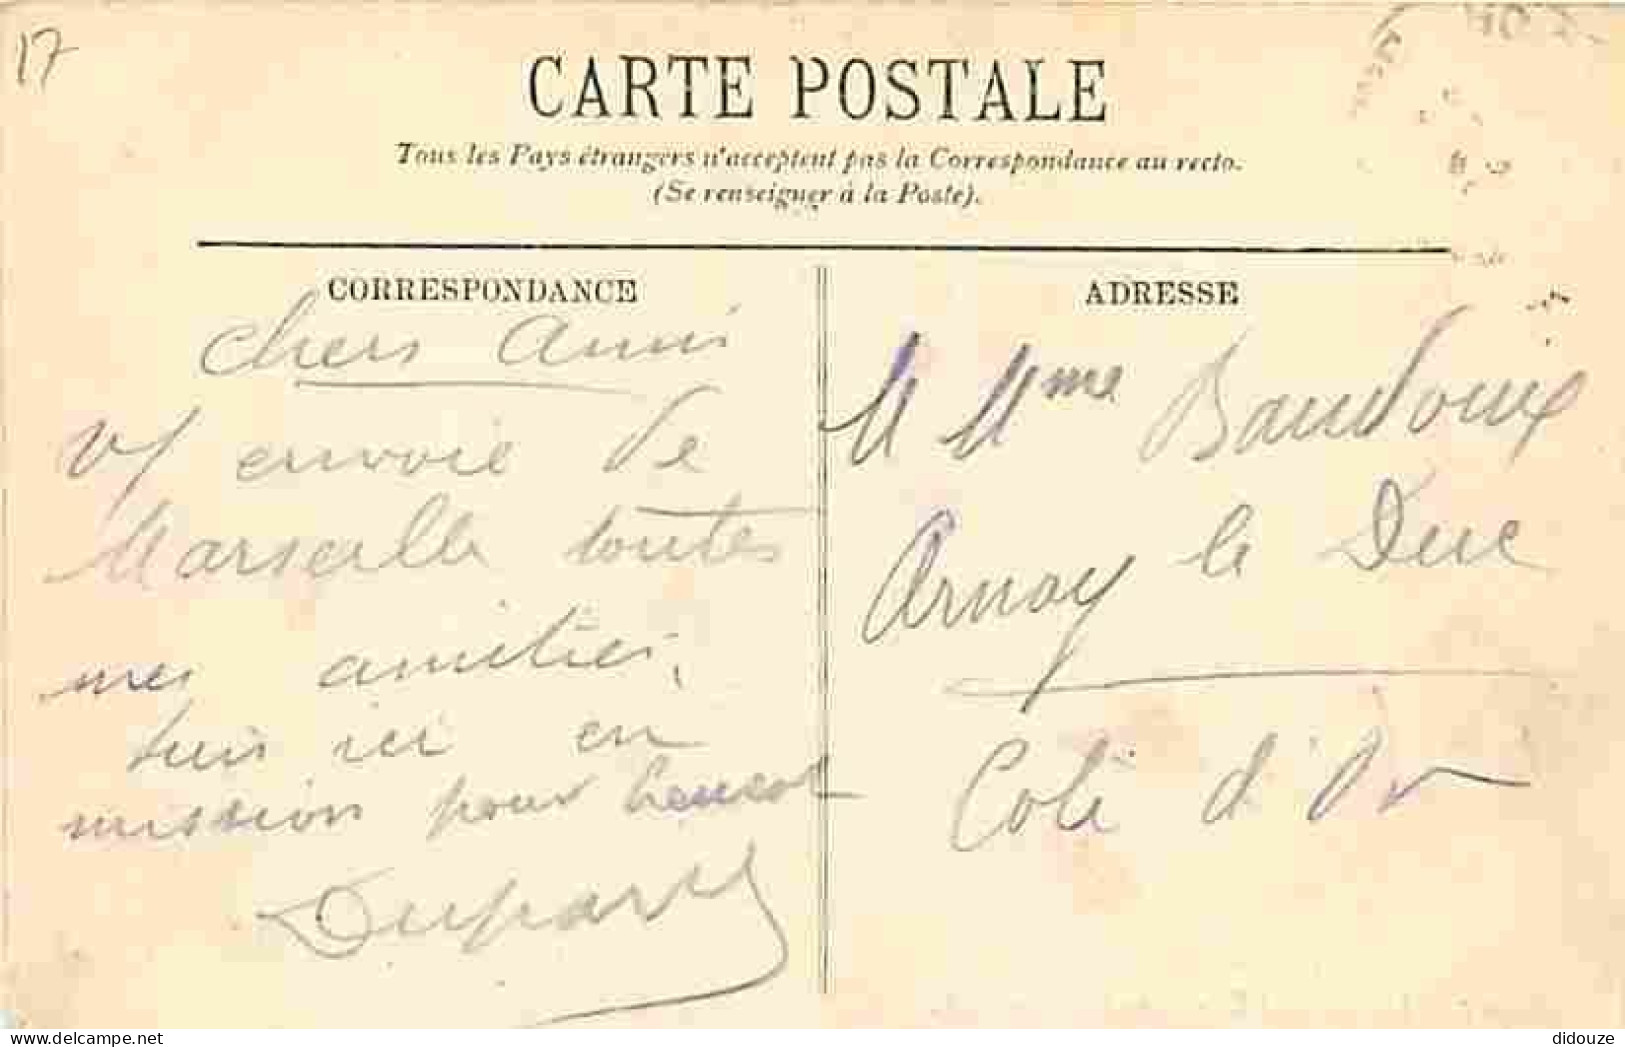 17
CARTE POSTALE
Tous les Pays étrangers n'acceptent pas la Correspondance au recto.
(Se renseigner à la Poste).
CORRESPONDANCE
Chers Amis
V/ envoie de
Marseille toutes
mes amitiés,
suis ici en
mission pour
ADRESSE
M Mme Baudouix
Arnay le Duc
Cote d'Or
didouze